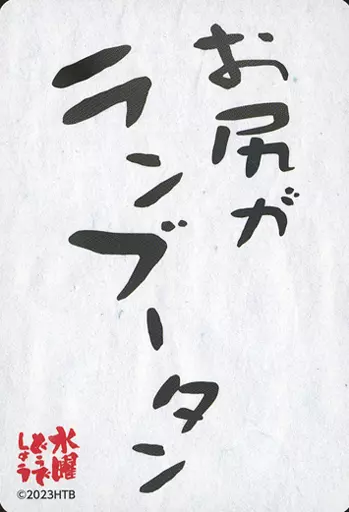 お尻が
ランブータン
水曜
どうで
しょう
©2023HTB